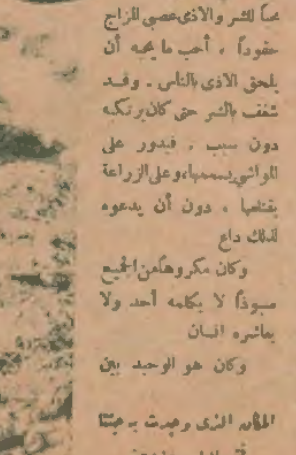 محباً للشر والاذى عصبي المزاج
حقوداً ، أحب ما يحبه أن
يلحق الاذى بالناس . وقد
شغف بالشر حتى كان يرتكبه
دون سبب . فيدور على
المواشي يسممها وعلى الزراعة
يقتلعها ، دون أن يدعوه
لذلك داع
وكان مكروهاً من الجميع
منبوذاً لا يكلمه أحد ولا
يعاشره انسان
وكان هو الوحيد بين
المكان الذى وجدت به جثتا